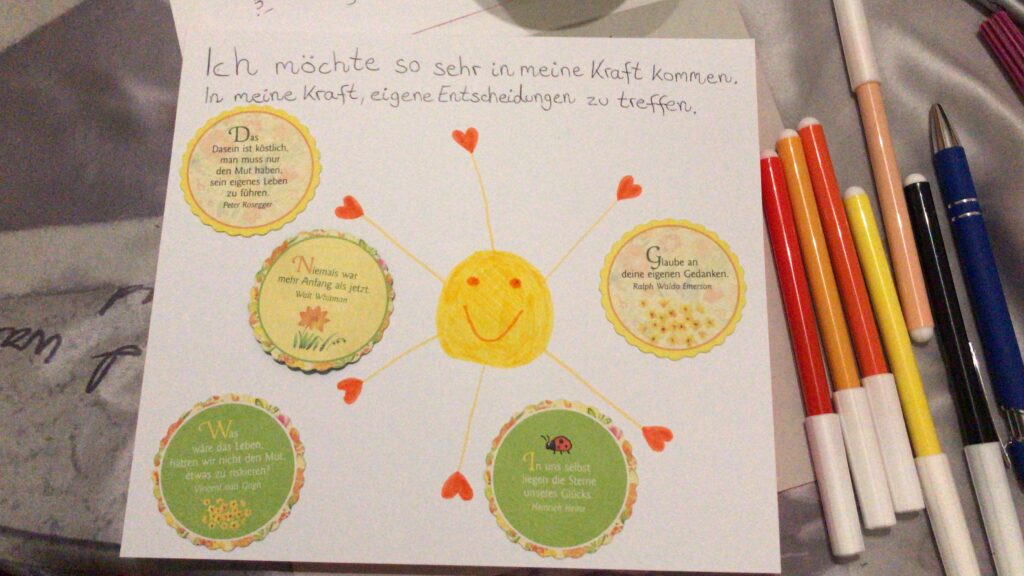 ?
Ich möchte so sehr in meine Kraft kommen.
In meine Kraft, eigene Entscheidungen zu treffen.
Das
Dasein ist köstlich,
man muss nur
den Mut haben,
sein eigenes Leben
zu führen.
Peter Rosegger
Niemals war
mehr Anfang als jetzt.
Walt Whitman
Glaube an
deine eigenen Gedanken.
Ralph Waldo Emerson
Was
wäre das Leben,
hätten wir nicht den Mut,
etwas zu riskieren?
Vincent van Gogh
In uns selbst
liegen die Sterne
unseres Glücks.
Heinrich Heine